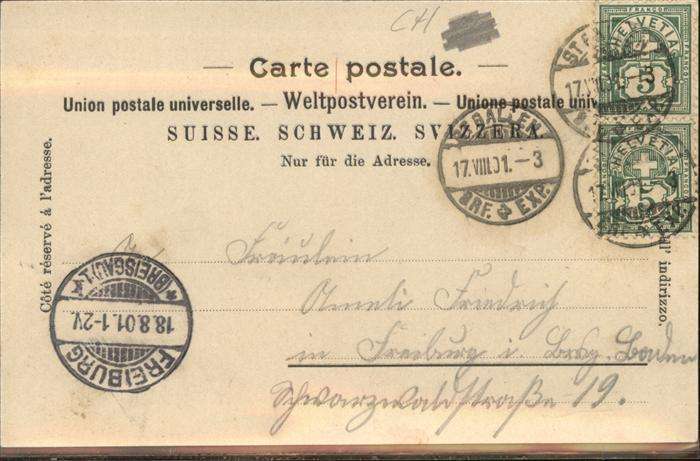 CH
Carte postale.
Union postale universelle. — Weltpostverein. — Unione postale univ
SUISSE. SCHWEIZ. SVIZZERA.
Nur für die Adresse.
Côté réservé à l'adresse.
all' indirizzo.
FRANCO
HELVETIA
5
FRANCO
HELVETIA
5
ST GALLEN
17.VIII.01.–3
BRF. EXP.
17.VIII
FREIBURG
18.8.01.1-2V
* (BREISGAU) 1. *
Fräulein
Ameli Friedrich
in Freiburg i. Brsg. Baden
Schwarzwaldstraße 19.